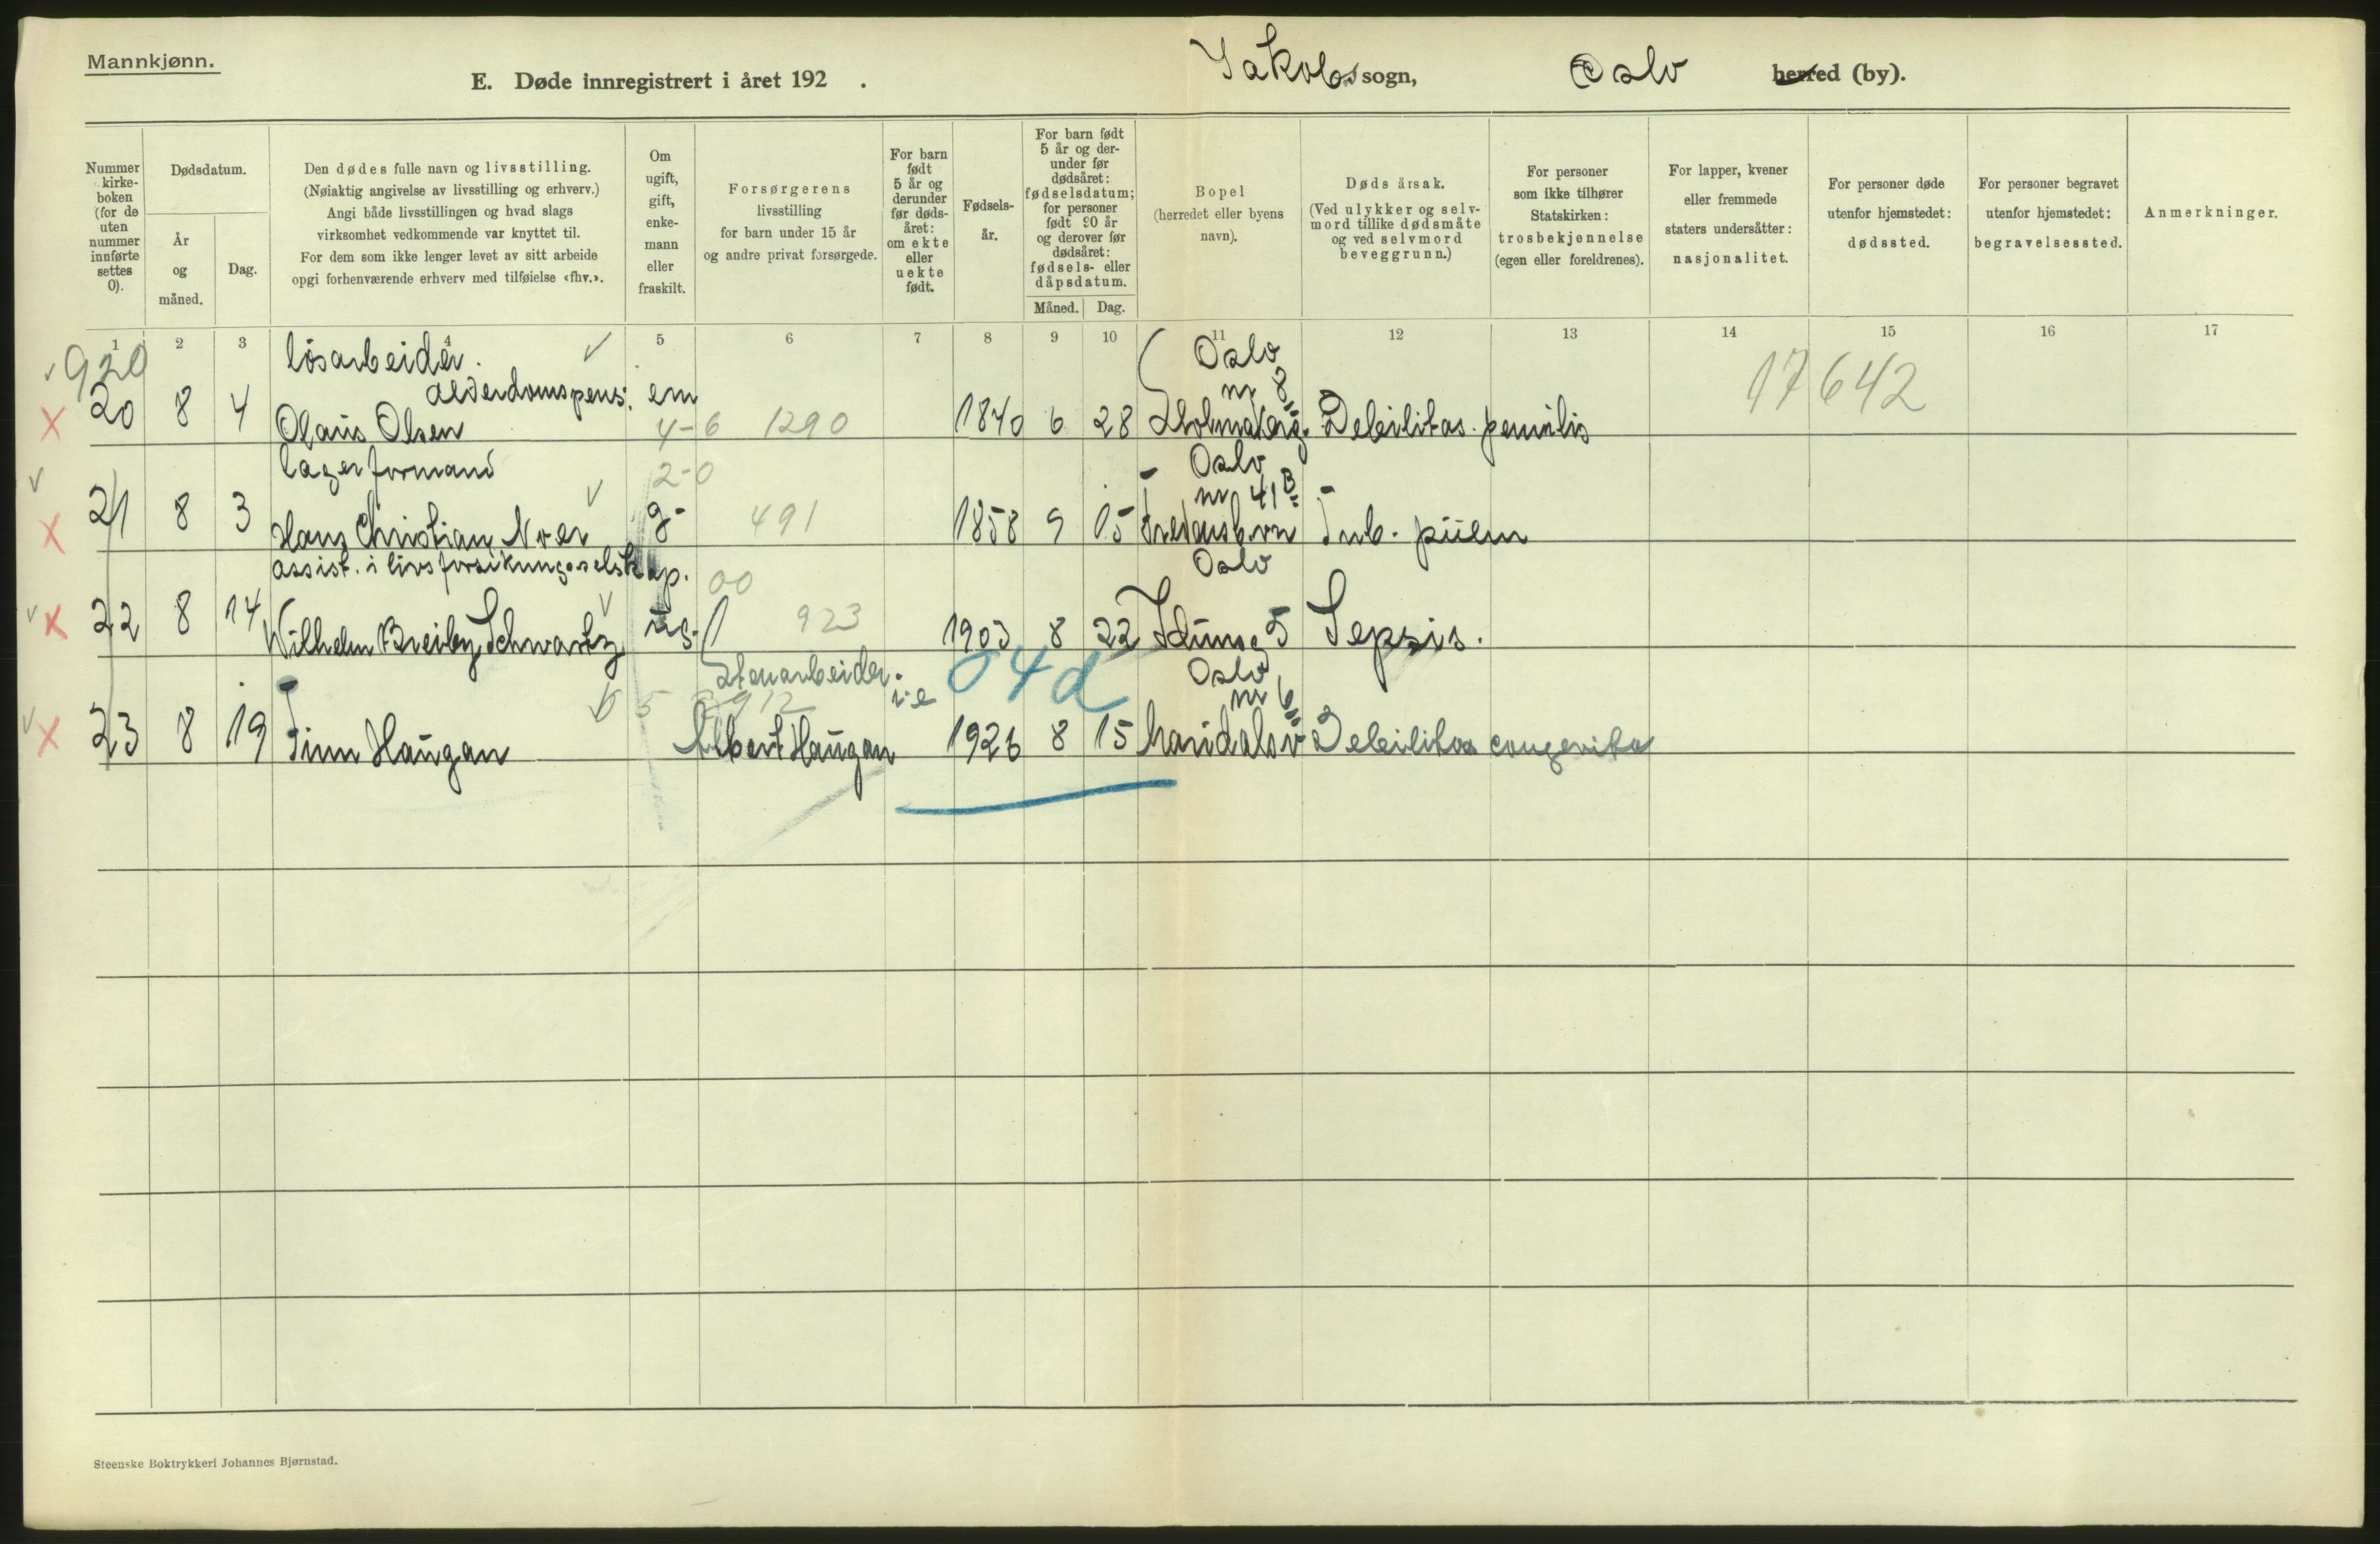 Mannkjønn.
E. Døde innregistrert i året 192 .
Jakobs sogn,
Oslo
herred (by).
Nummer
kirke-
boken
(for de
uten
nummer
innførte
settes
0).
Dødsdatum.
År
og
måned.
Dag.
Den dødes fulle navn og livsstilling.
(Nøiaktig angivelse av livsstilling og erhverv.)
Angi både livsstillingen og hvad slags
virksomhet vedkommende var knyttet til.
For dem som ikke lenger levet av sitt arbeide
opgi forhenværende erhverv med tilføielse «fhv.».
Om
ugift,
gift,
enke-
mann
eller
fraskilt.
Forsørgerens
livsstilling
for barn under 15 år
og andre privat forsørgede.
For barn
født
5 år og
derunder
før døds-
året:
om ekte
eller
uekte
født.
Fødsels-
år.
For barn født
5 år og der-
under før
dødsåret:
fødselsdatum;
for personer
født 20 år
og derover før
dødsåret:
fødsels- eller
dåpsdatum.
Måned.
Dag.
Bopel
(herredet eller byens
navn).
Dødsårsak.
(Ved ulykker og selv-
mord tillike dødsmåte
og ved selvmord
beveggrunn.)
For personer
som ikke tilhører
Statskirken:
trosbekjennelse
(egen eller foreldrenes).
For lapper, kvener
eller fremmede
staters undersåtter:
nasjonalitet.
For personer døde
utenfor hjemstedet:
dødssted.
For personer begravet
utenfor hjemstedet:
begravelsessted.
Anmerkninger.
1 2 3 4 5 6 7 8 9 10 11 12 13 14 15 16 17
920 løsarbeider. Oslo
alderdomspens. em nr 8 17642
20 8 4 Olaus Olsen 4-6 1290 1840 6 28 Debilitas senilis
lagerformand 2-0 Oslo
nr 41 B
21 8 3 Hans Christian Noer g. 491 1858 9 15 Fredensb.vn Tub. pulm
assist. i livsforsikringsselskap. 00 Oslo
22 8 14 Wilhelm Breiby Schwartz ug. 923 1903 8 22 Idunsg 5 Sepsis.
Stenarbeider. 04d Oslo
5 i.e nr 6
23 8 19 Finn Haugan Albert Haugan 1926 8 15 Maridalsv Debilitas congenita
Steenske Boktrykkeri Johannes Bjørnstad.